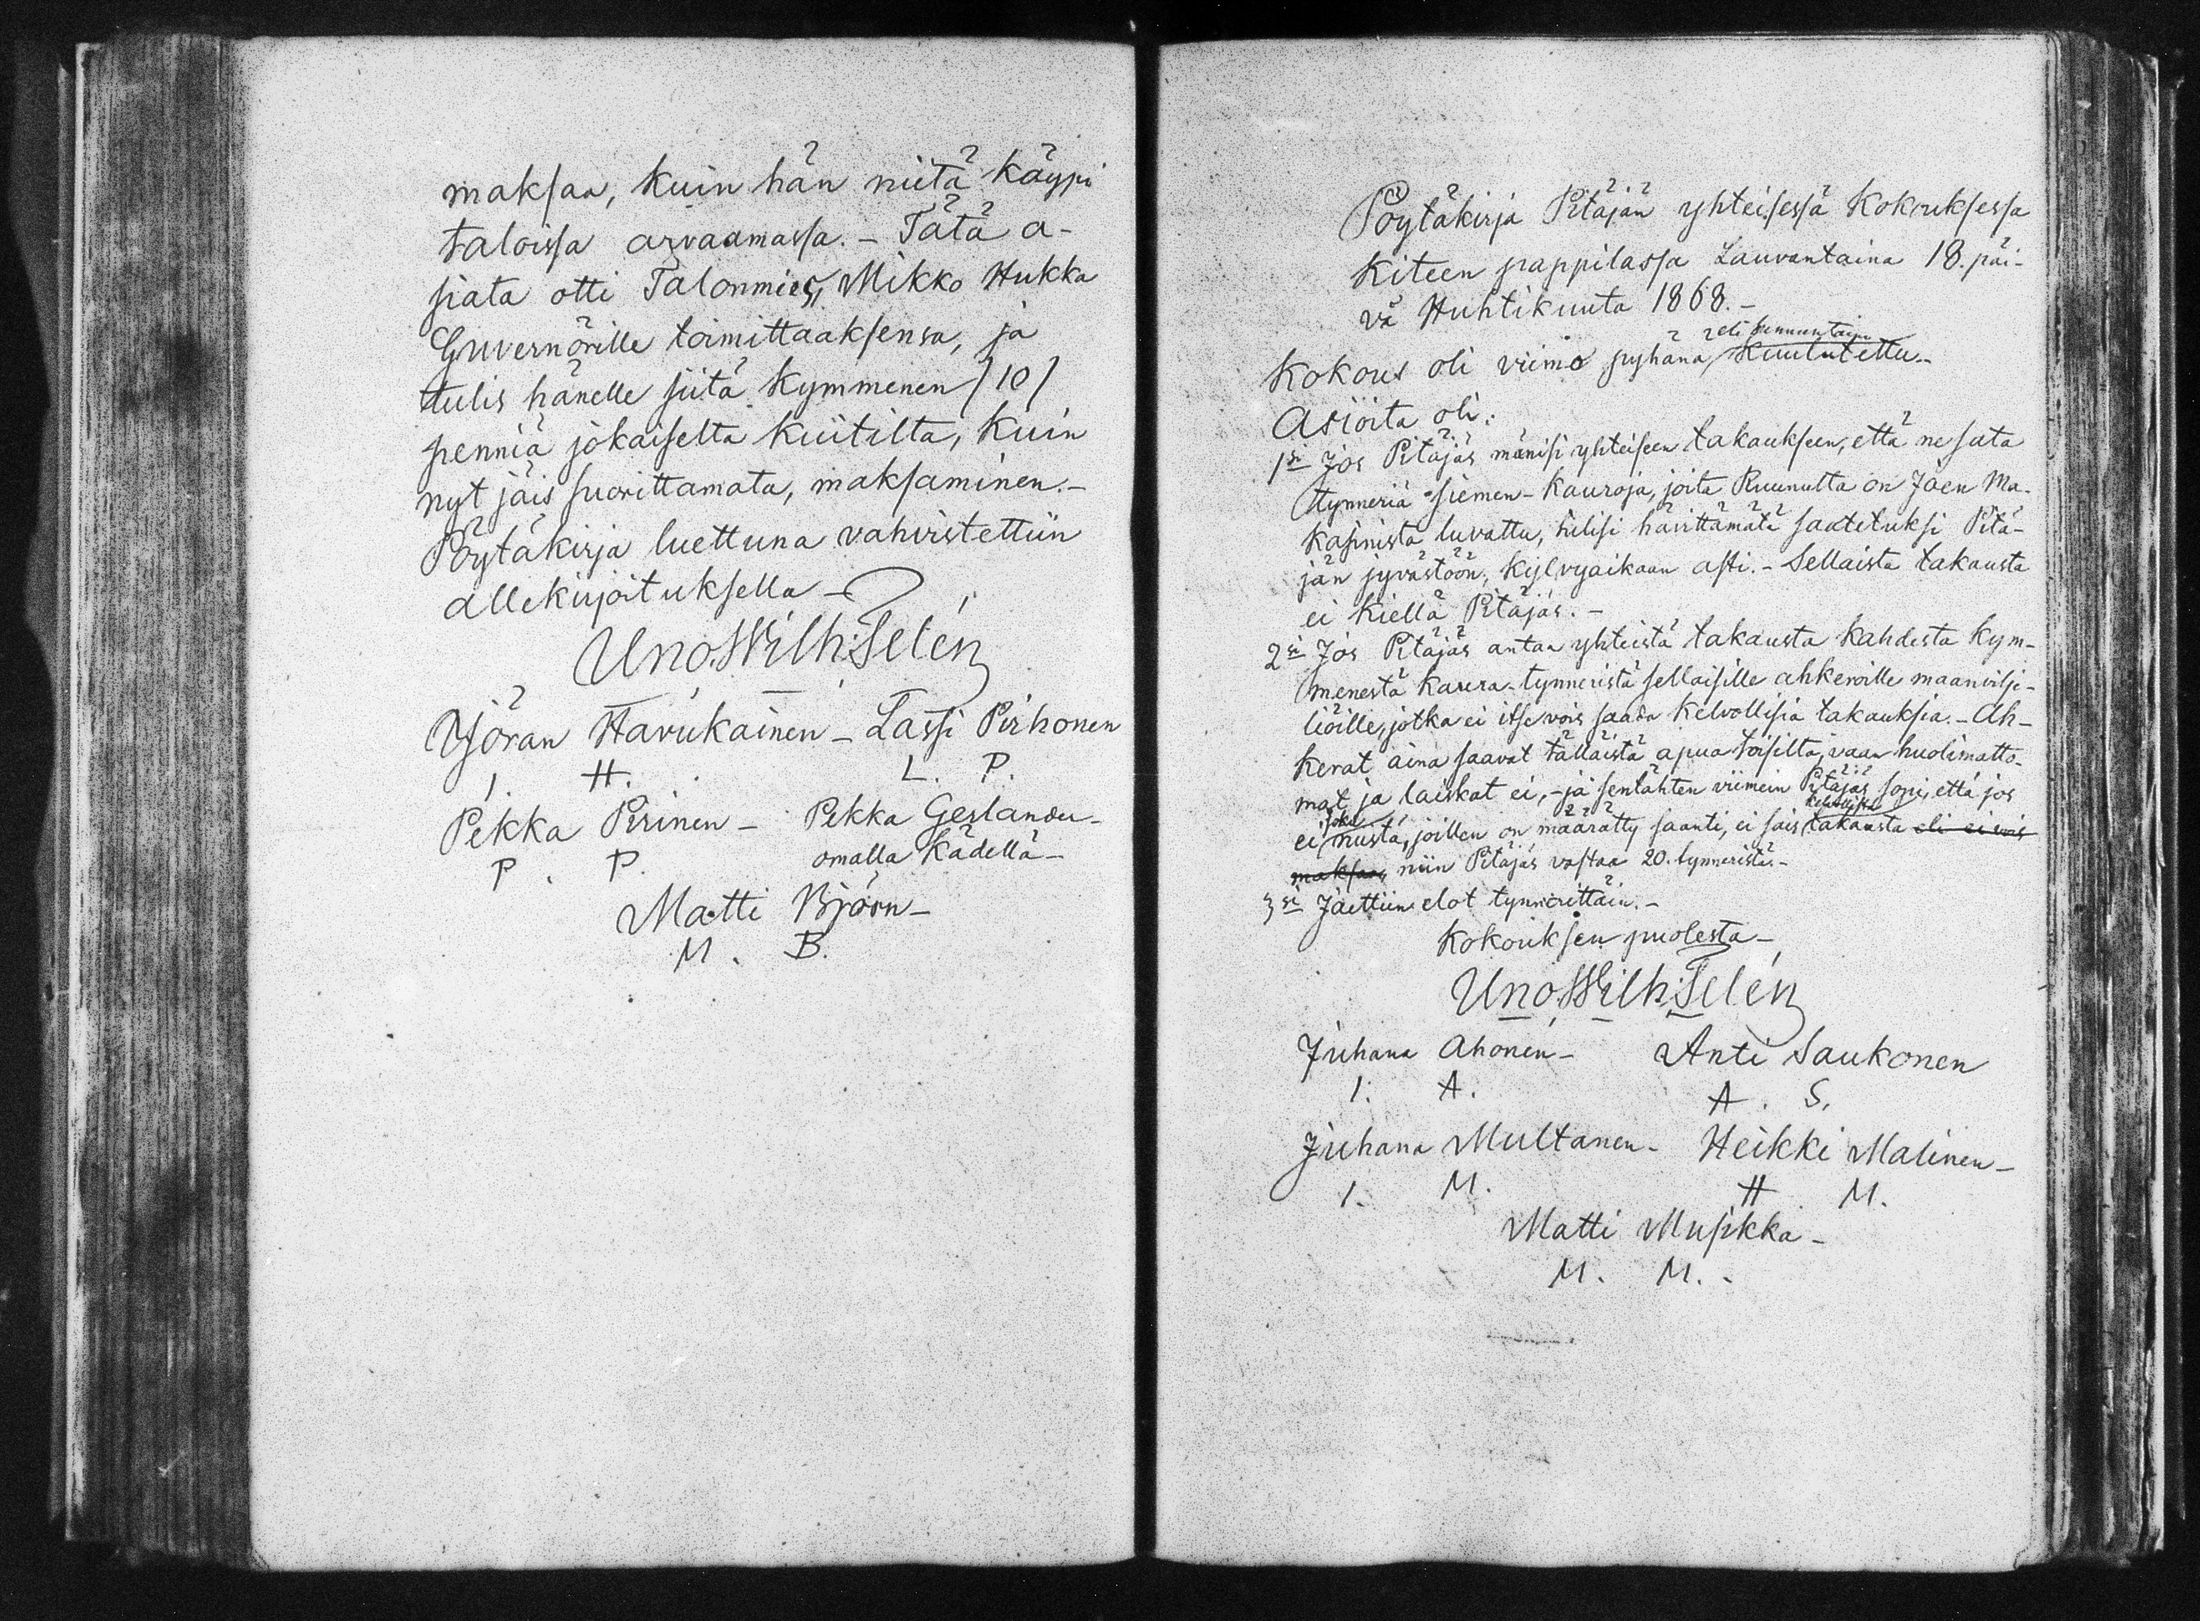 maksaa, kuin hän niitä käypi
taloissa arvaamassa. – Tätä a-
siata otti Talonmies, Mikko Hukka
Guvernörille toimittaaksensa, ja
tulis hänelle siitä kymmenen /10/
penniä jokaiselta kuitilta, kuin
nyt jäis suorittamata, maksaminen. –
Pöytäkirja luettuna vahvistettiin
allekirjoituksella –
Uno Wilh: Telén
Yöran Havukainen – Lassi Pirhonen
I. H. L. P.
Pekka Pirinen – Pekka Geslander –
P. P. omalla kädellä –
Matti Björn –
M. B.
Pöytäkirja Pitäjän yhteisessä kokouksessa
Kiteen pappilassa Lauvantaina 18. päi-
vä Huhtikuuta 1868. –
eli sunnuntaina
Kokous oli viimo pyhänä kuulutettu. –
Asioita oli:
1si Jos Pitäjäs mänisi yhteiseen takaukseen, että ne sata
tynneriä siemen-kauroja, joita Ruunulta on Joen Ma-
kasinista luvattu, tulisi hävittämätä saatetuksi Pitä-
jän jyvästöön, kylvyaikaan asti. – Sellaista takausta
ei kiellä Pitäjäs. –
2si Jos Pitäjäs antaa yhteistä takausta kahdesta kym-
menestä kaura-tynneristä sellaisille ahkeroille maanvilje-
liöille, jotka ei itse vois saada kelvollisia takauksia. – Ah-
kerat aina saavat tälläistä apua toisilta, vaan huolimatto-
mat ja laiskat ei, – ja sentähten viimein Pitäjäs sopi, että jos
joku kelvollista
ei niistä, joillen on määrätty saanti, ei sais takausta eli ei vois
maksaa, niin Pitäjäs vastaa 20. tynneristä. –
3si Jaettiin elot tynnörittäin. –
Kokouksen puolesta –
Uno Wilh: Telén
Juhana Ahonen – Anti Saukonen
I. A. A. S.
Juhana Multanen – Heikki Malinen –
I. M. H M.
Matti Musikka –
M. M.